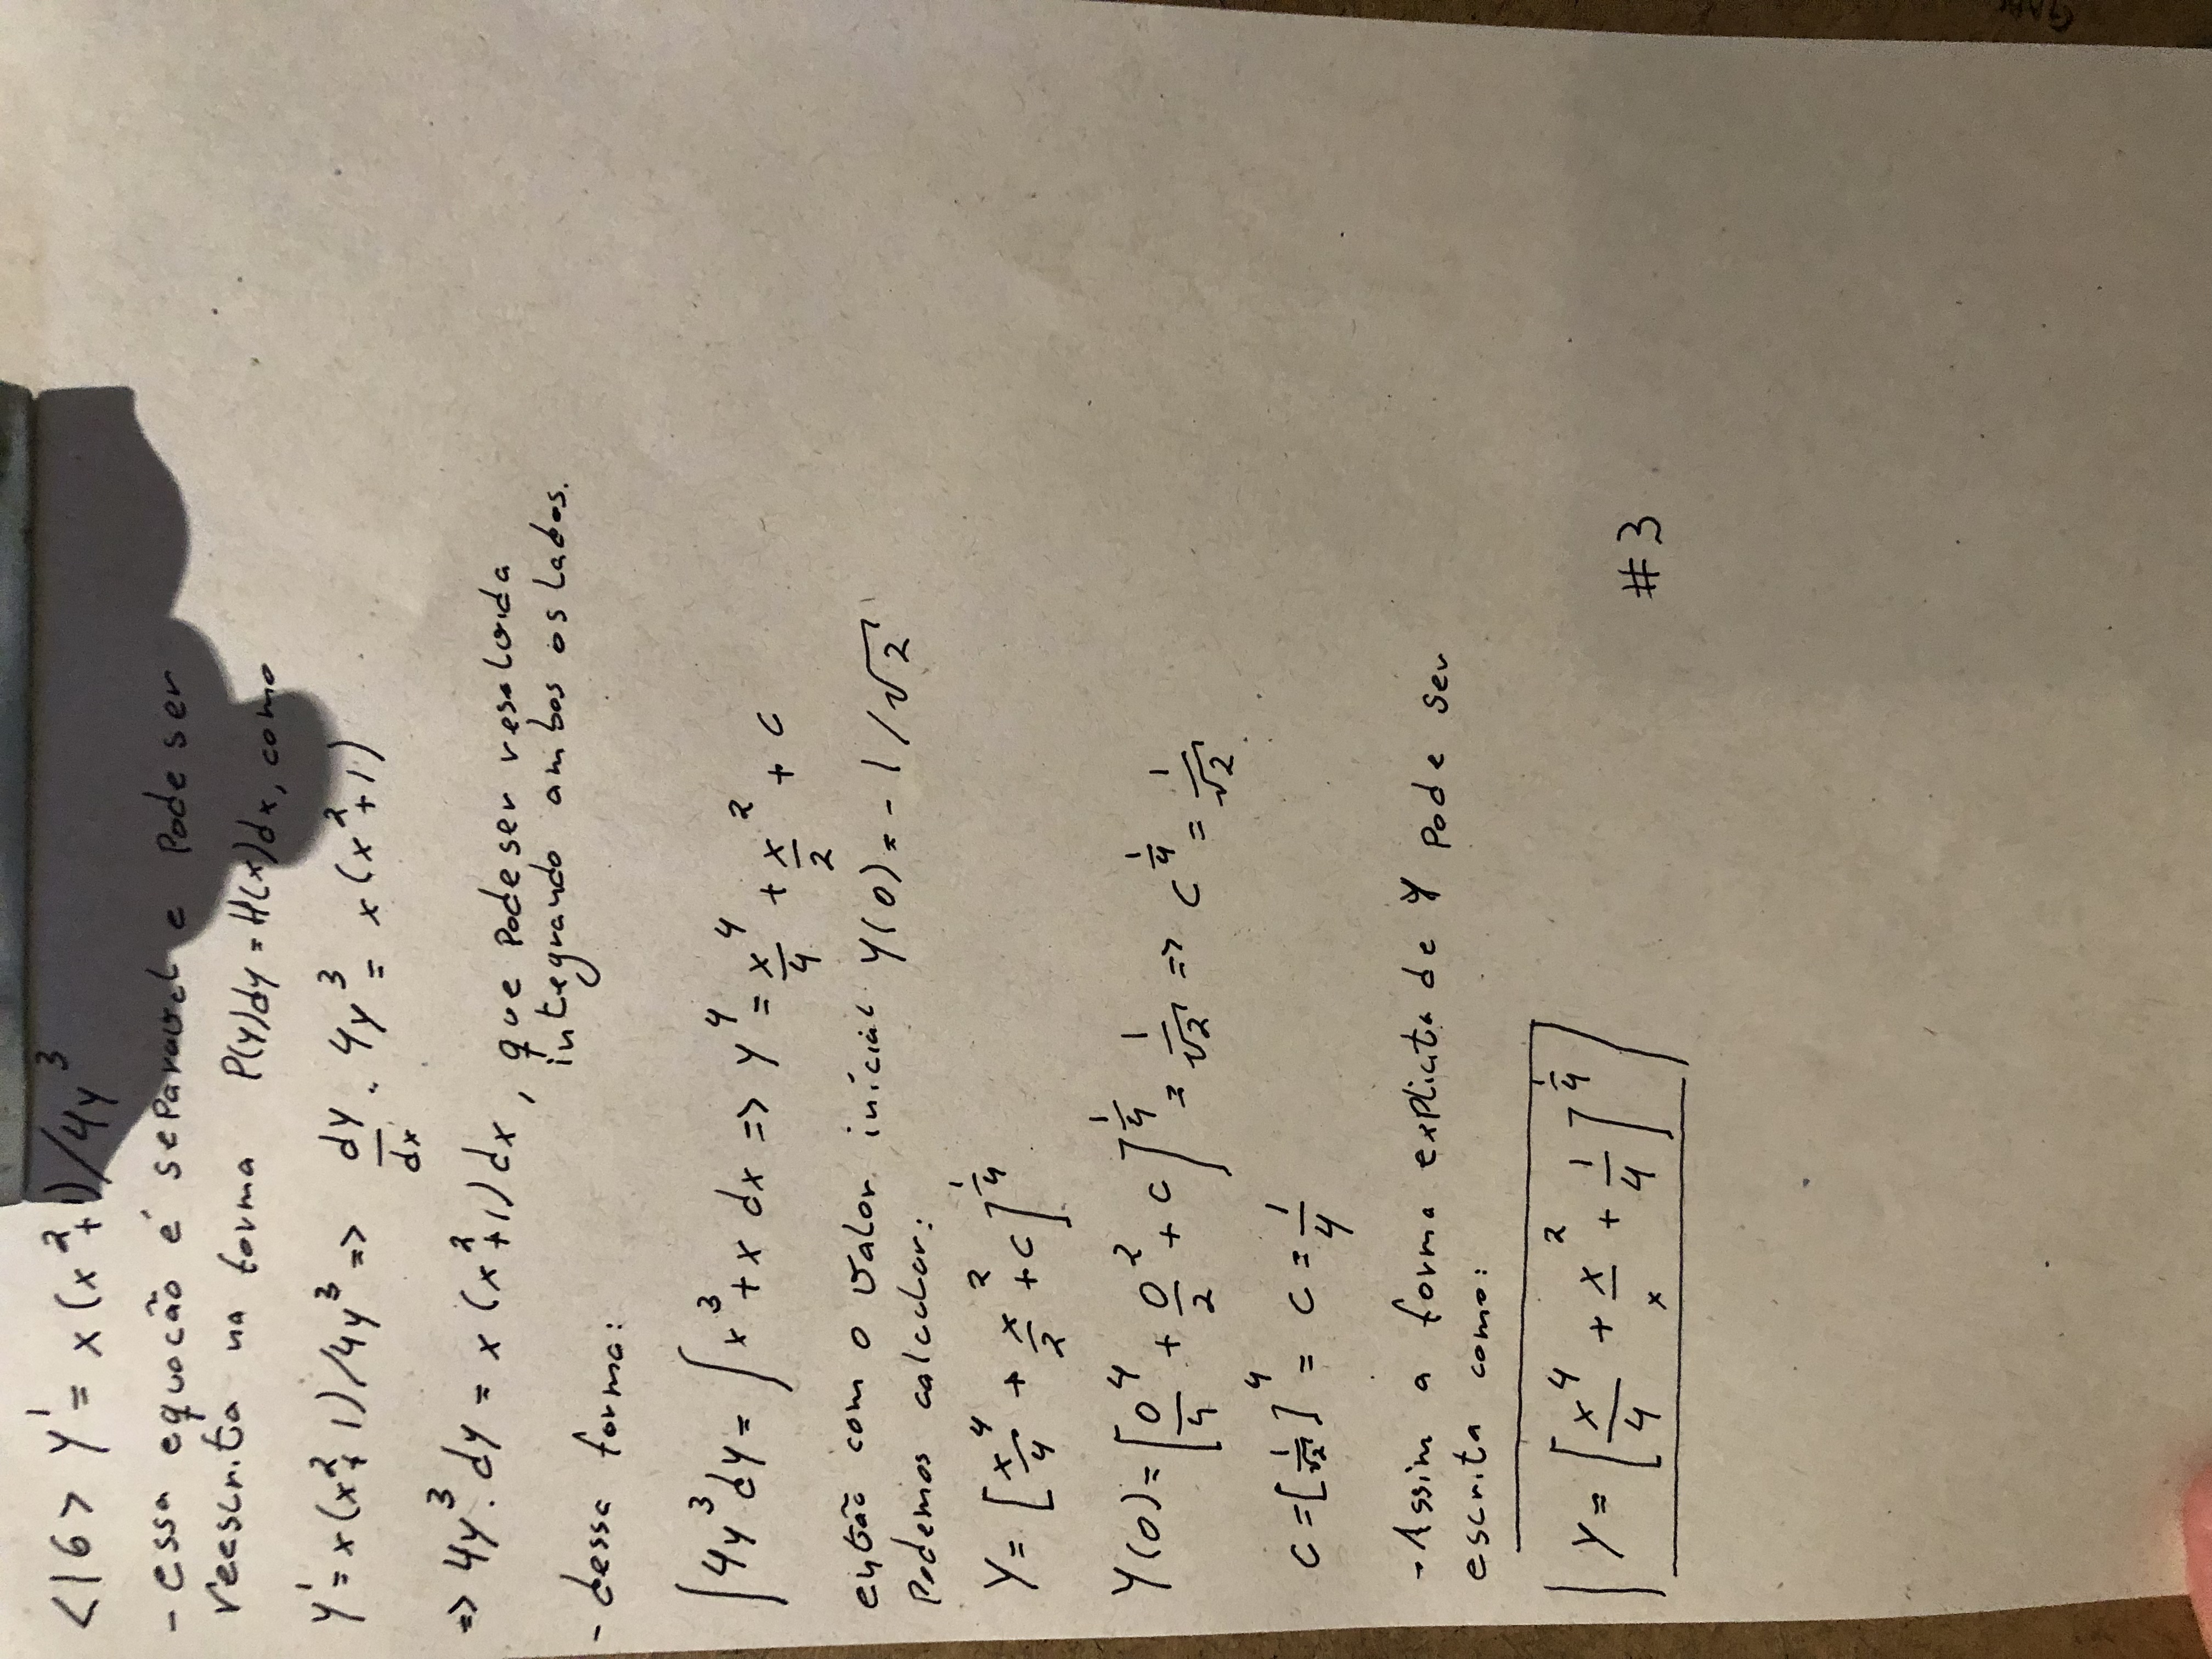 <16> y' = x(x²+1)/4y³
- essa equocão é separavel e pode ser
reescrita na forma P(y)dy = H(x)dx, como
y' = x(x²+1)/4y³ => dy/dx . 4y³ = x(x²+1)
=> 4y³. dy = x(x²+1)dx, que pode ser resolvida
integrando ambos os lados.
- dessa forma:
∫4y³dy = ∫x³+x dx => y⁴ = x⁴/4 + x²/2 + c
então com o valor inicial y(0) = -1/√2
podemos calcular:
y = [x⁴/4 + x²/2 + c]^1/4
y(0) = [0⁴/4 + 0²/2 + c]^1/4 = 1/√2 => c^1/4 = 1/√2
c = [1/√2]⁴ = c = 1/4
- Assim a forma explicita de y pode ser
escrita como:
y = [x⁴/4 + x²/x + 1/4]^1/4
#3